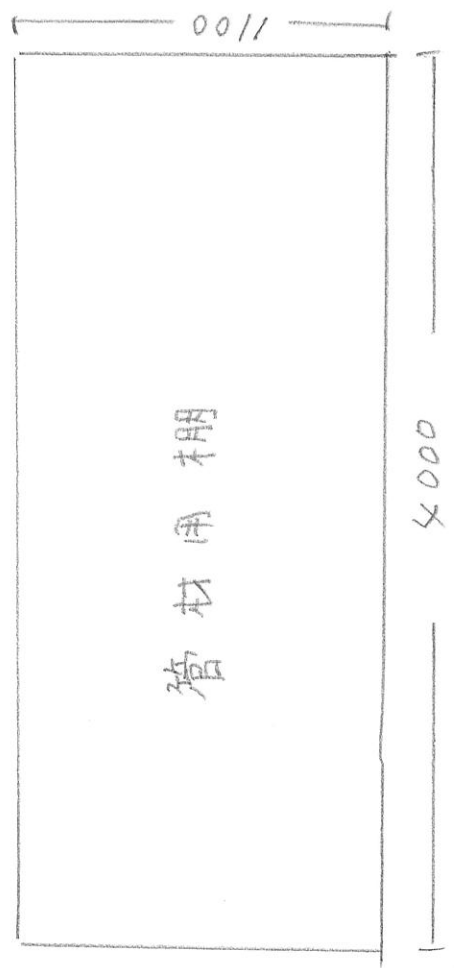 1100
管材用棚
4000